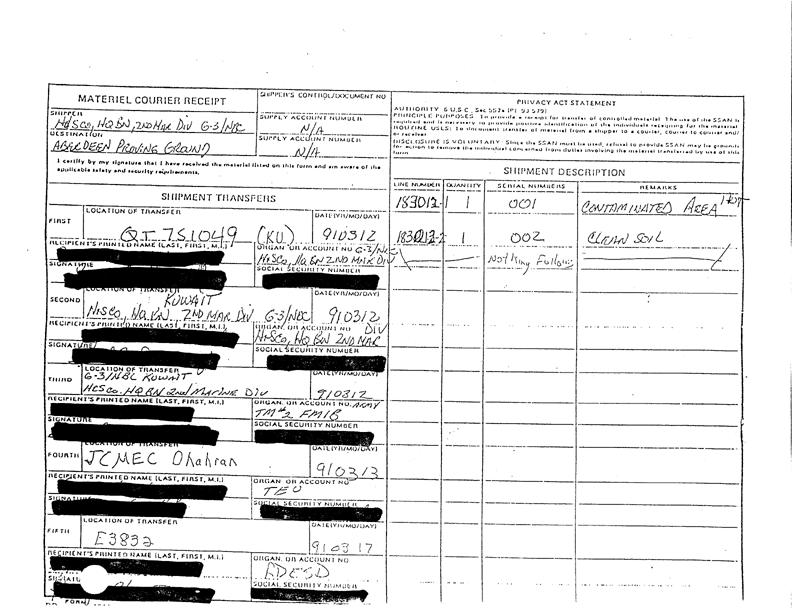 MATERIEL COURIER RECEIPT
SHIPPER'S CONTROL/DOCUMENT NO
SHIPPER
HdSCo, HQ BN, 2ND MAR DIV G-3/NBC
SUPPLY ACCOUNT NUMBER
N/A
DESTINATION
ABERDEEN PROVING GROUND
SUPPLY ACCOUNT NUMBER
N/A
I certify by my signature that I have received the material listed on this form and am aware of the
applicable safety and security requirements.
PRIVACY ACT STATEMENT
AUTHORITY 5 U.S.C., Sec 552a (PL 93-579)
PRINCIPLE PURPOSES: To provide a receipt for transfer of controlled material. The use of the SSAN is
required and is necessary to provide positive identification of the individuals receipting for the material.
ROUTINE USES: To document transfer of material from a shipper to a courier, courier to courier and/
or receiver.
DISCLOSURE IS VOLUNTARY: Since the SSAN must be used, refusal to provide SSAN may be grounds
for action to remove the individual concerned from duties involving the material transferred by use of this
form.
SHIPMENT TRANSFERS
FIRST
LOCATION OF TRANSFER
DATE(YR/MO/DAY)
QT 751049 (KU) 910312
RECIPIENT'S PRINTED NAME (LAST, FIRST, M.I.)
ORGAN OR ACCOUNT NO G-3/NBC
HdSCo, HQ BN 2ND MAR DIV
SIGNATURE
SOCIAL SECURITY NUMBER
SECOND
LOCATION OF TRANSFER
KUWAIT
DATE(YR/MO/DAY)
HdSCo, HQ BN 2ND MAR DIV G-3/NBC 910312
RECIPIENT'S PRINTED NAME (LAST, FIRST, M.I.)
ORGAN. OR ACCOUNT NO DIV
HdSCo, HQ BN 2ND MAR
SIGNATURE
SOCIAL SECURITY NUMBER
THIRD
LOCATION OF TRANSFER
DATE(YR/MO/DAY)
G-3/NBC KUWAIT
HdSCo, HQ BN 2nd MARINE DIV 910312
RECIPIENT'S PRINTED NAME (LAST, FIRST, M.I.)
ORGAN. OR ACCOUNT NO. ARMY
TM#2 FMIB
SIGNATURE
SOCIAL SECURITY NUMBER
FOURTH
LOCATION OF TRANSFER
DATE(YR/MO/DAY)
JCMEC Dhahran 910313
RECIPIENT'S PRINTED NAME (LAST, FIRST, M.I.)
ORGAN. OR ACCOUNT NO
TEU
SIGNATURE
SOCIAL SECURITY NUMBER
FIFTH
LOCATION OF TRANSFER
DATE(YR/MO/DAY)
E3832 910317
RECIPIENT'S PRINTED NAME (LAST, FIRST, M.I.)
ORGAN. OR ACCOUNT NO
SOCIAL SECURITY NUMBER
FORM
SHIPMENT DESCRIPTION
LINE NUMBER QUANTITY SERIAL NUMBERS REMARKS
183012-1 1 001 CONTAMINATED AREA
183012-2 1 002 CLEAN SOIL
Nothing Follows